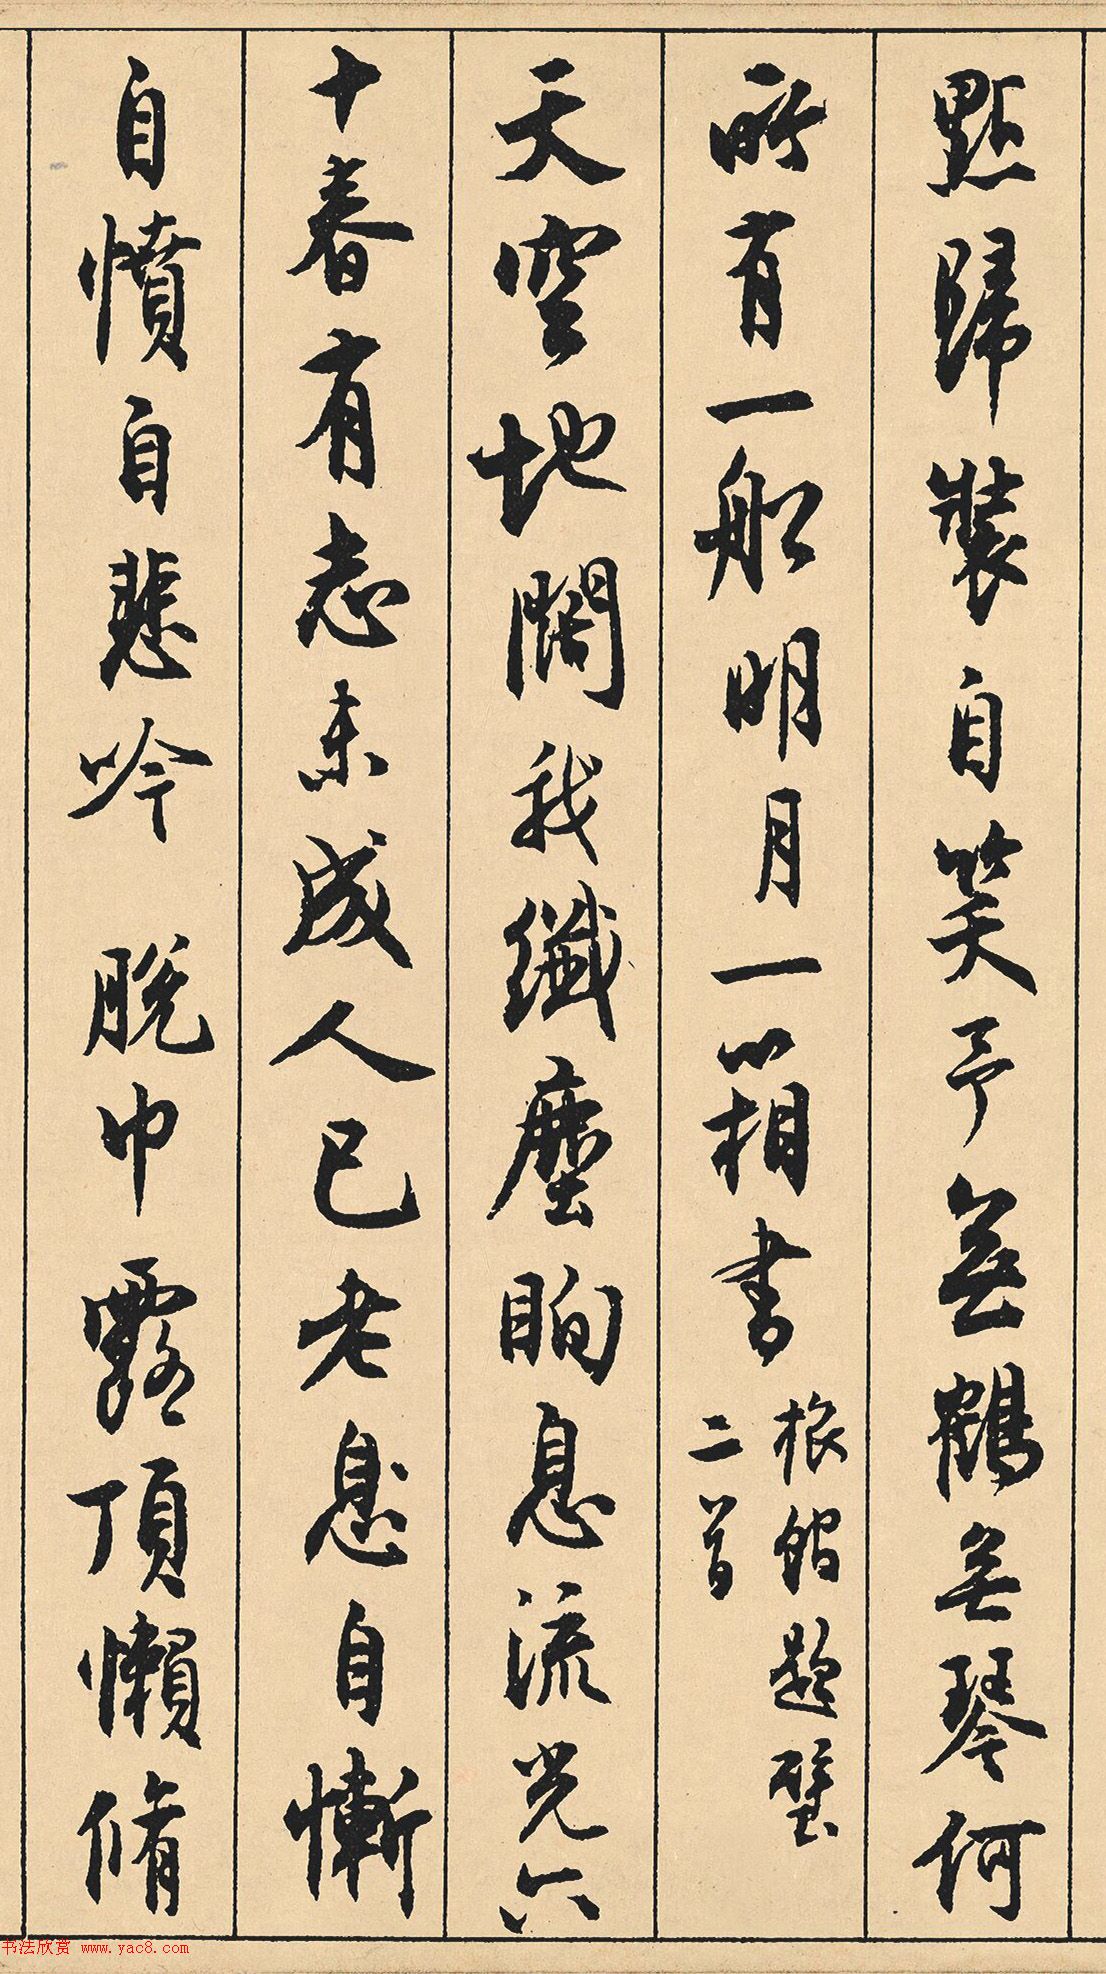 點歸裝自笑予無鶴無琴何
所有一船明月一箱書旅館題壁
二首
天空地闊我纖塵眴息流光六
十春有志未成人已老息自慚
自憤自悲吟 脫巾露頂懶脩
书法欣赏 www.yac8.com